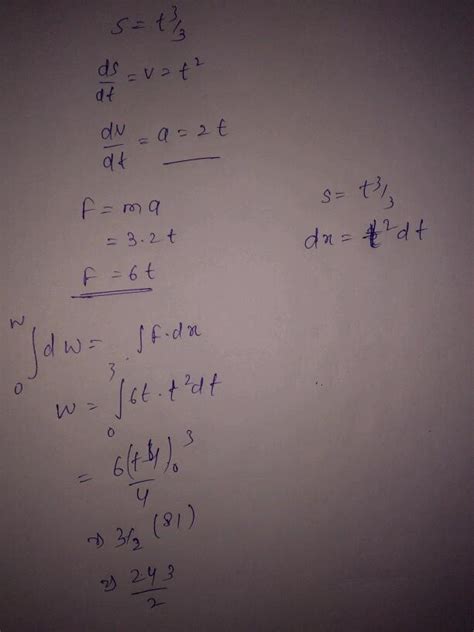 s = t³/3
ds/dt = v = t²
dv/dt = a = 2t
F = ma
= 3·2t
F = 6t
s = t³/3
dx = t²dt
∫₀ᵂ dW = ∫F·dx
W = ∫₀³ 6t·t²dt
= 6(t⁴)₀³/4
⇒ 3/2 (81)
⇒ 243/2